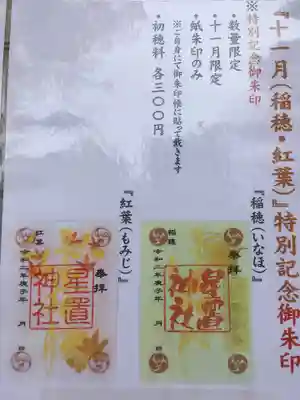 『十一月(稲穂・紅葉)』特別記念御朱印
※特別記念御朱印
・数量限定
・十一月限定
・紙朱印のみ
※ご自身にて御朱印帳に貼って戴きます
・初穂料 各三〇〇円
『稲穂(いなほ)』
稲穂
奉拝
星置神社
令和二年庚子年 月 日
『紅葉(もみじ)』
紅葉
奉拝
星置神社
令和二年庚子年 月 日